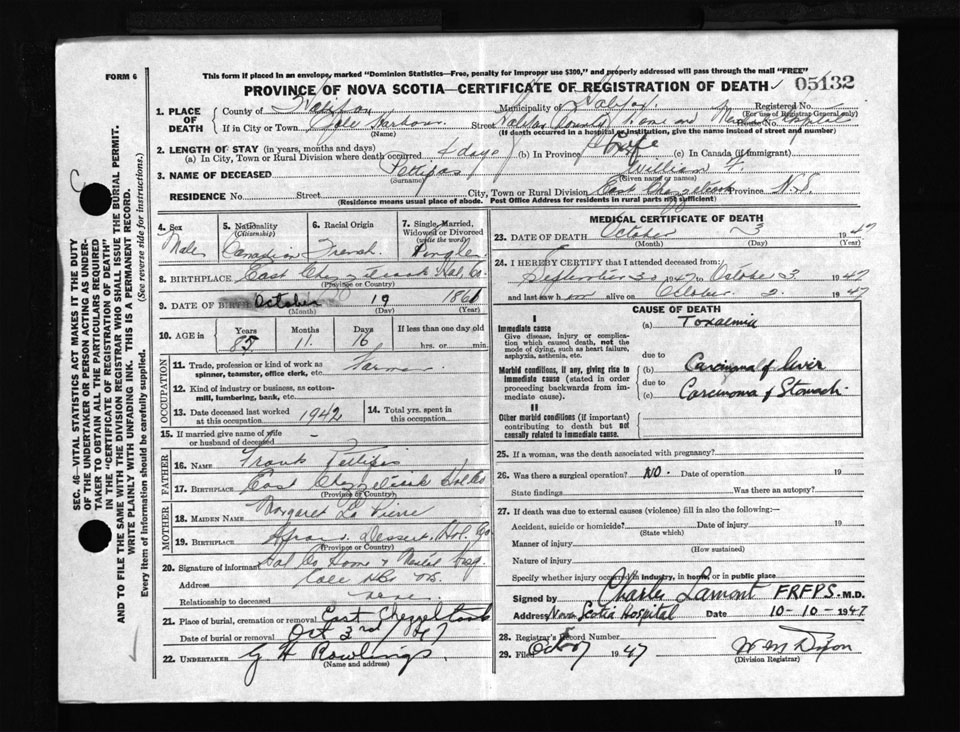 FORM 6
This form if placed in an envelope, marked "Dominion Statistics—Free, penalty for improper use $300," and properly addressed will pass through the mail "FREE"
PROVINCE OF NOVA SCOTIA—CERTIFICATE OF REGISTRATION OF DEATH
05132
1. PLACE OF DEATH
County of Halifax Municipality of Halifax Registered No.
(For use of Registrar General only)
If in City or Town Cole Harbour Street Halifax County Home and Mental Hospital
(Name) (If death occurred in a hospital or institution, give the name instead of street and number)
2. LENGTH OF STAY (in years, months and days)
(a) In City, Town or Rural Division where death occurred 4 days (b) In Province Life (c) In Canada (if immigrant)
3. NAME OF DECEASED Pettipas William
(Surname) (Given name or names)
RESIDENCE No. Street City, Town or Rural Division East Chezzetcook Province N.S.
(Residence means usual place of abode. Post Office Address for residents in rural parts not sufficient)
4. Sex Male
5. Nationality (Citizenship) Canadian
6. Racial Origin French
7. Single, Married, Widowed or Divorced (write the word) Single
8. BIRTHPLACE East Chezzetcook Hal. Co.
(Province or Country)
9. DATE OF BIRTH October 19 1861
(Month) (Day) (Year)
10. AGE in Years 85 Months 11 Days 16 If less than one day old hrs. or min.
OCCUPATION
11. Trade, profession or kind of work as spinner, teamster, office clerk, etc. Farmer
12. Kind of industry or business, as cotton-mill, lumbering, bank, etc.
13. Date deceased last worked at this occupation 1942
14. Total yrs. spent in this occupation
15. If married give name of wife or husband of deceased -
FATHER
16. NAME Frank Pettipas
17. BIRTHPLACE East Chezzetcook Hal Co
(Province or Country)
MOTHER
18. MAIDEN NAME Margaret La Pierre
19. BIRTHPLACE Dessert, Hal. Co.
(Province or Country)
20. Signature of informant Hal Co Home & Mental Hosp.
Address Cole Hbr
Relationship to deceased
21. Place of burial, cremation or removal East Chezzetcook
Date of burial or removal Oct 3rd / 47
22. UNDERTAKER G H Rowlings.
(Name and address)
MEDICAL CERTIFICATE OF DEATH
23. DATE OF DEATH October 3 1947
(Month) (Day) (Year)
24. I HEREBY CERTIFY that I attended deceased from:
September 30 1947 to October 3 1947
and last saw him alive on October 2. 1947
CAUSE OF DEATH
I
Immediate cause
Give disease, injury or complication which caused death, not the mode of dying, such as heart failure, asphyxia, asthenia, etc.
(a) Toxaemia
due to
Morbid conditions, if any, giving rise to immediate cause (stated in order proceeding backwards from immediate cause).
(b) Carcinoma of liver
due to
(c) Carcinoma of Stomach
II
Other morbid conditions (if important) contributing to death but not causally related to immediate cause.
25. If a woman, was the death associated with pregnancy?
26. Was there a surgical operation? NO. Date of operation 19
State findings Was there an autopsy.
27. If death was due to external causes (violence) fill in also the following:—
Accident, suicide or homicide? Date of injury 19
(State which)
Manner of injury
(How sustained)
Nature of injury
Specify whether injury occurred in industry, in home, or in public place
Signed by Charles Lamont FRFPS M.D.
Address Nova Scotia Hospital Date 10-10-1947
28. Registrar's Record Number
29. Filed Oct 1947 W M Dixon
(Division Registrar)
SEC. 46—VITAL STATISTICS ACT MAKES IT THE DUTY
OF THE UNDERTAKER OR PERSON ACTING AS UNDER-
TAKER TO OBTAIN ALL THE PARTICULARS REQUIRED
IN THE "CERTIFICATE OF REGISTRATION OF DEATH"
AND TO FILE THE SAME WITH THE DIVISION REGISTRAR WHO SHALL ISSUE THE BURIAL PERMIT.
WRITE PLAINLY WITH UNFADING INK. THIS IS A PERMANENT RECORD.
Every item of information should be carefully supplied. (See reverse side for instructions.)